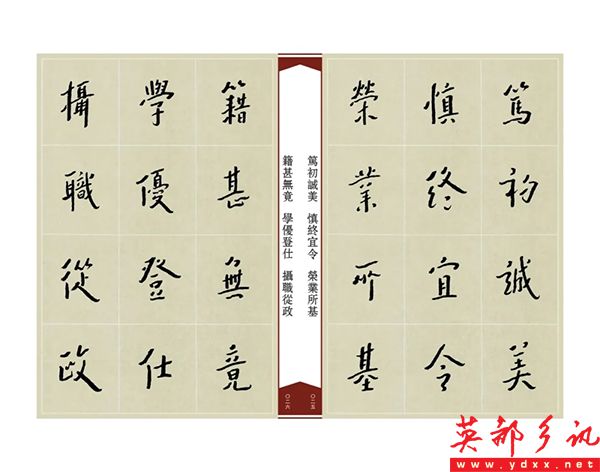 篤初誠美
慎終宜令
榮業所基
籍甚無竟
學優登仕
攝職從政
篤初誠美 慎終宜令 榮業所基
籍甚無竟 學優登仕 攝職從政
〇二五
〇二六
英都乡讯
www.ydxx.net